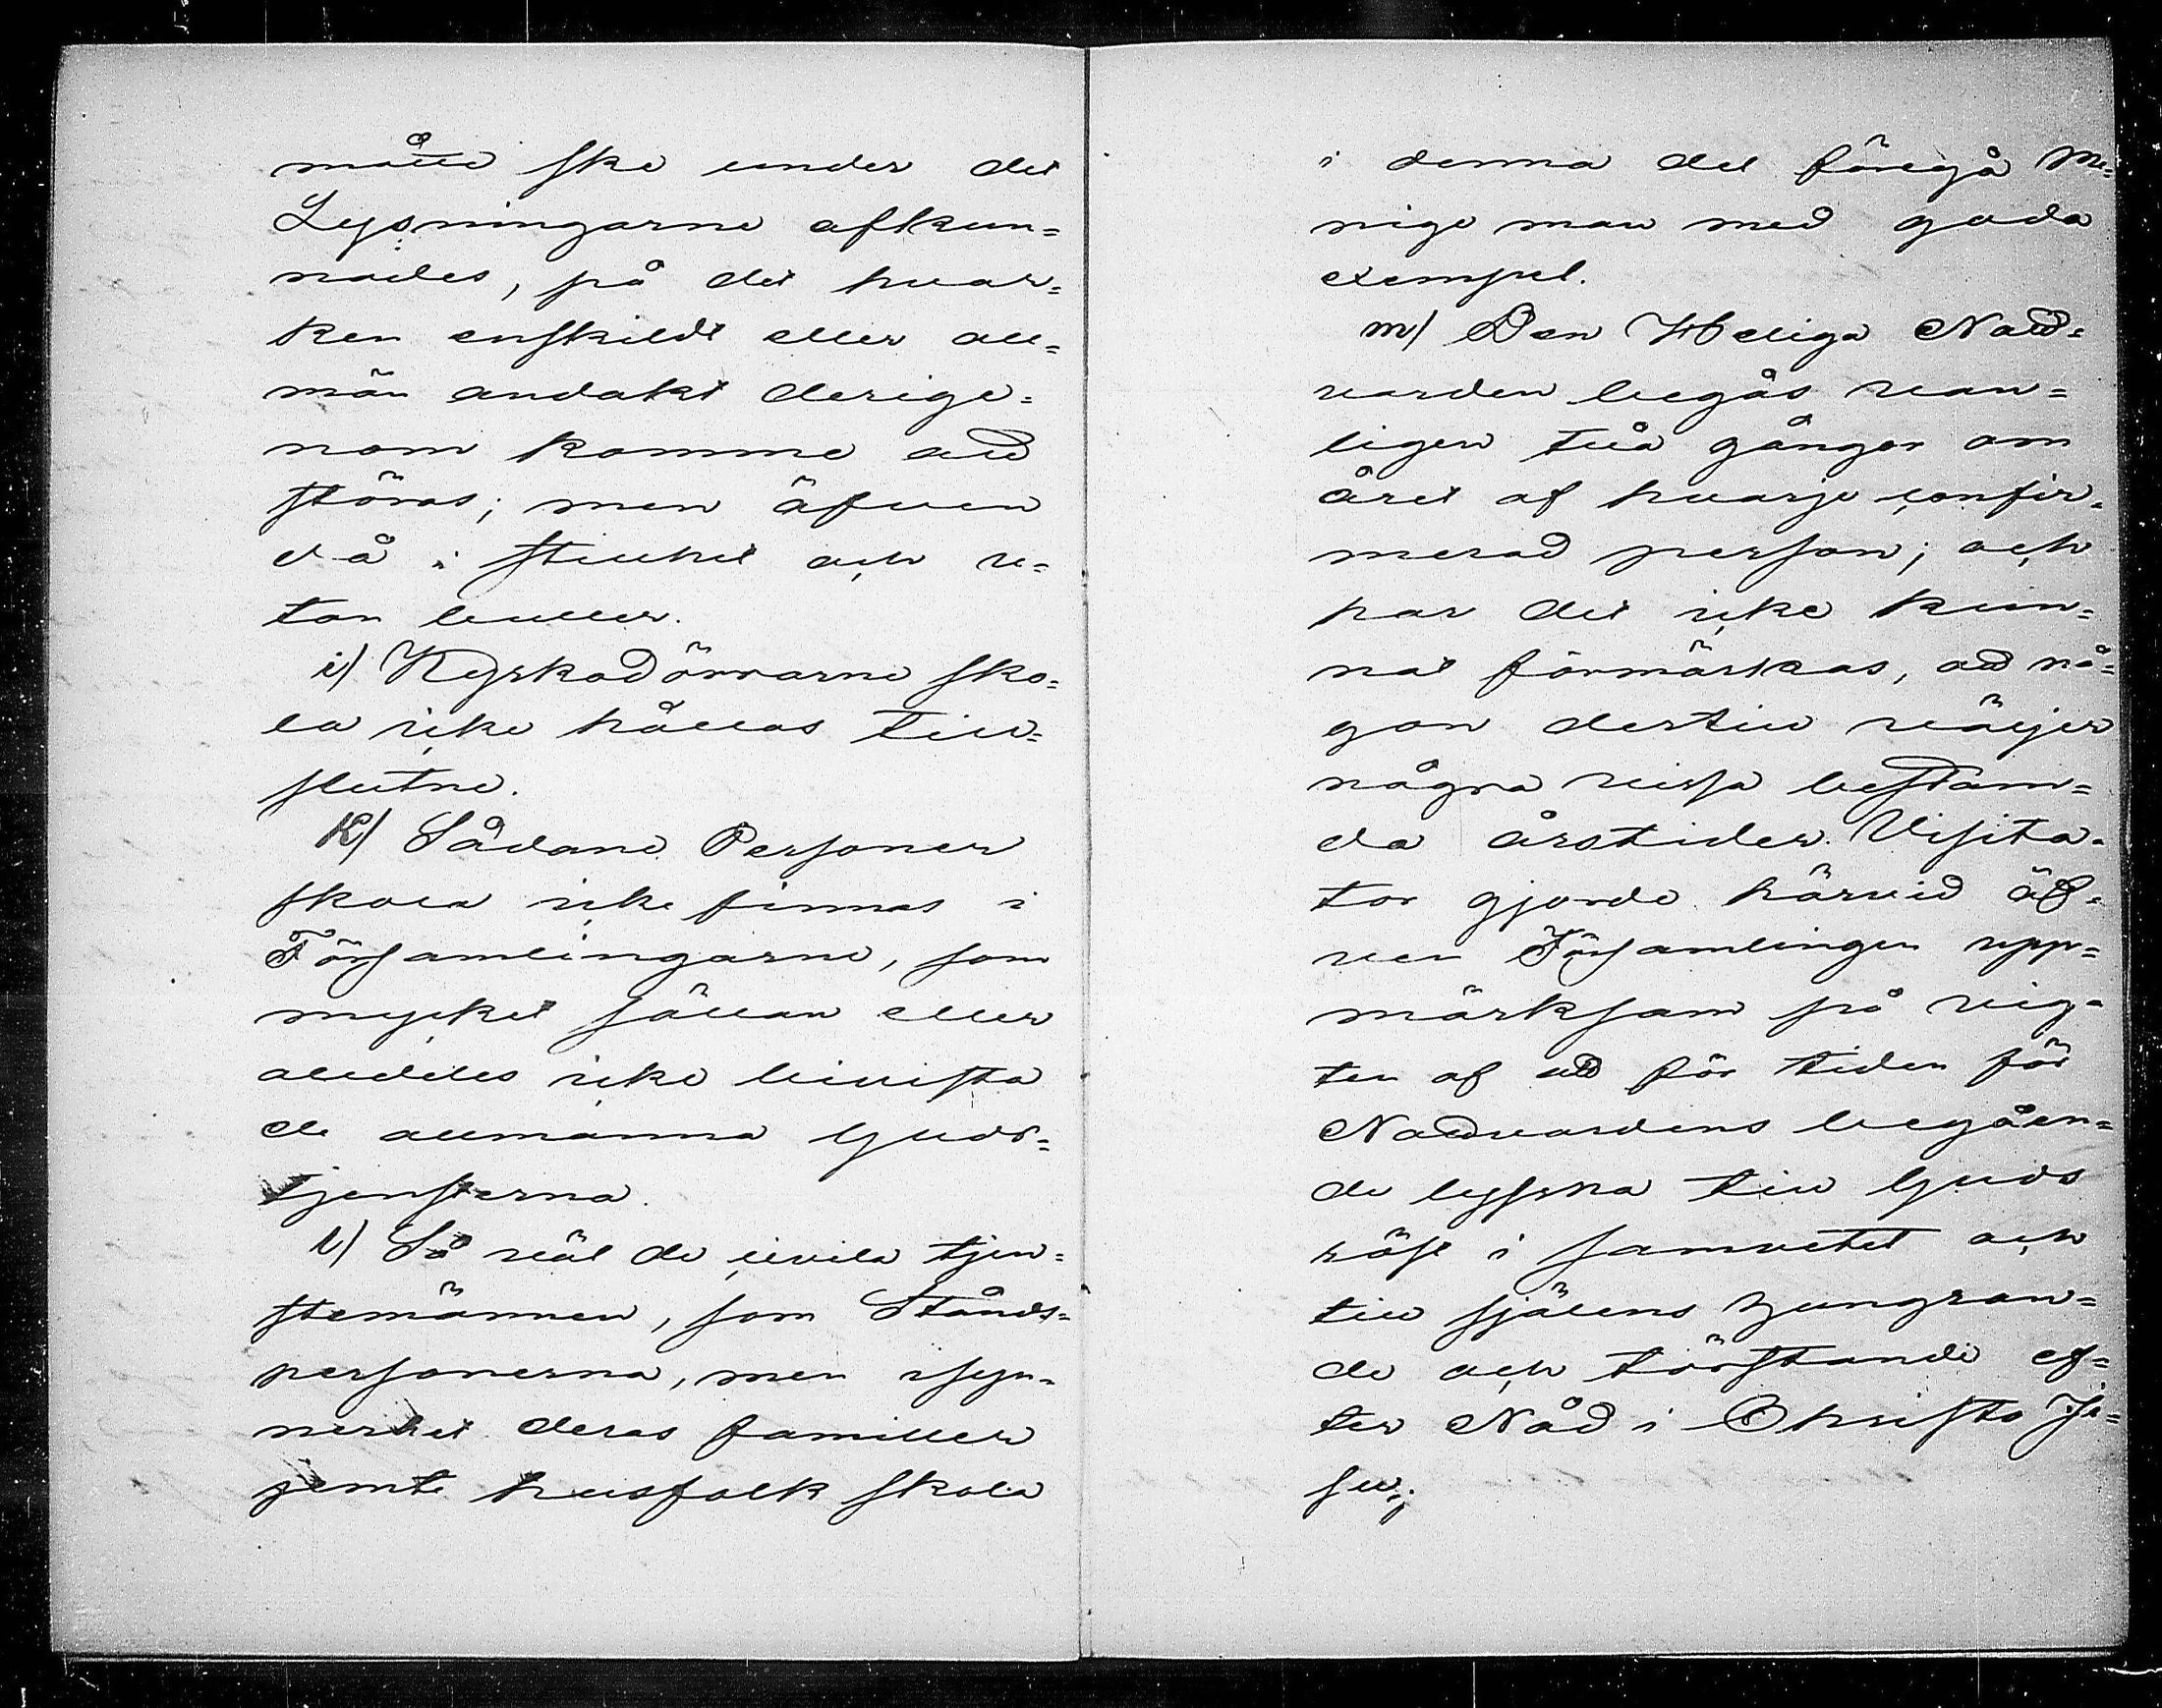 måtte ske under det
Lysningarne afkun=
nades, på det hvar=
ken enskildt eller all=
män andakt derige=
nom komme att
störas; men äfven
då i stillhet och u=
tan buller.
i) Kyrkodörrarne sko=
la icke hållas till=
slutne.
k) Sådane Personer
skola icke finnas i
Församlingarne, som
mycket sällan eller
alldeles icke bivista
de allmänna Guds=
tjensterna.
l) Så väl de civila tjen=
stemännen, som Stånds=
personerna, men isyn=
nerhet deras familler
jemte husfolk skola
i denna del föregå me=
nige man med goda
exempel.
m) Den Heliga Natt=
varden begås van=
ligen två gånger om
året af hvarje confir=
merad person; och
har det icke kun=
nat förmärkas, att nå=
gon dertill väljer
några vissa bestäm=
da årstider. Visita=
tor gjorde härvid äf=
ven Församlingen upp=
märksam på vig=
ten af att för tiden för
Nattvardens begåen=
de lyssna till Guds
röst i samvetet och
till själens hungran=
de och törstande ef=
ter Nåd i Christo Je=
su.